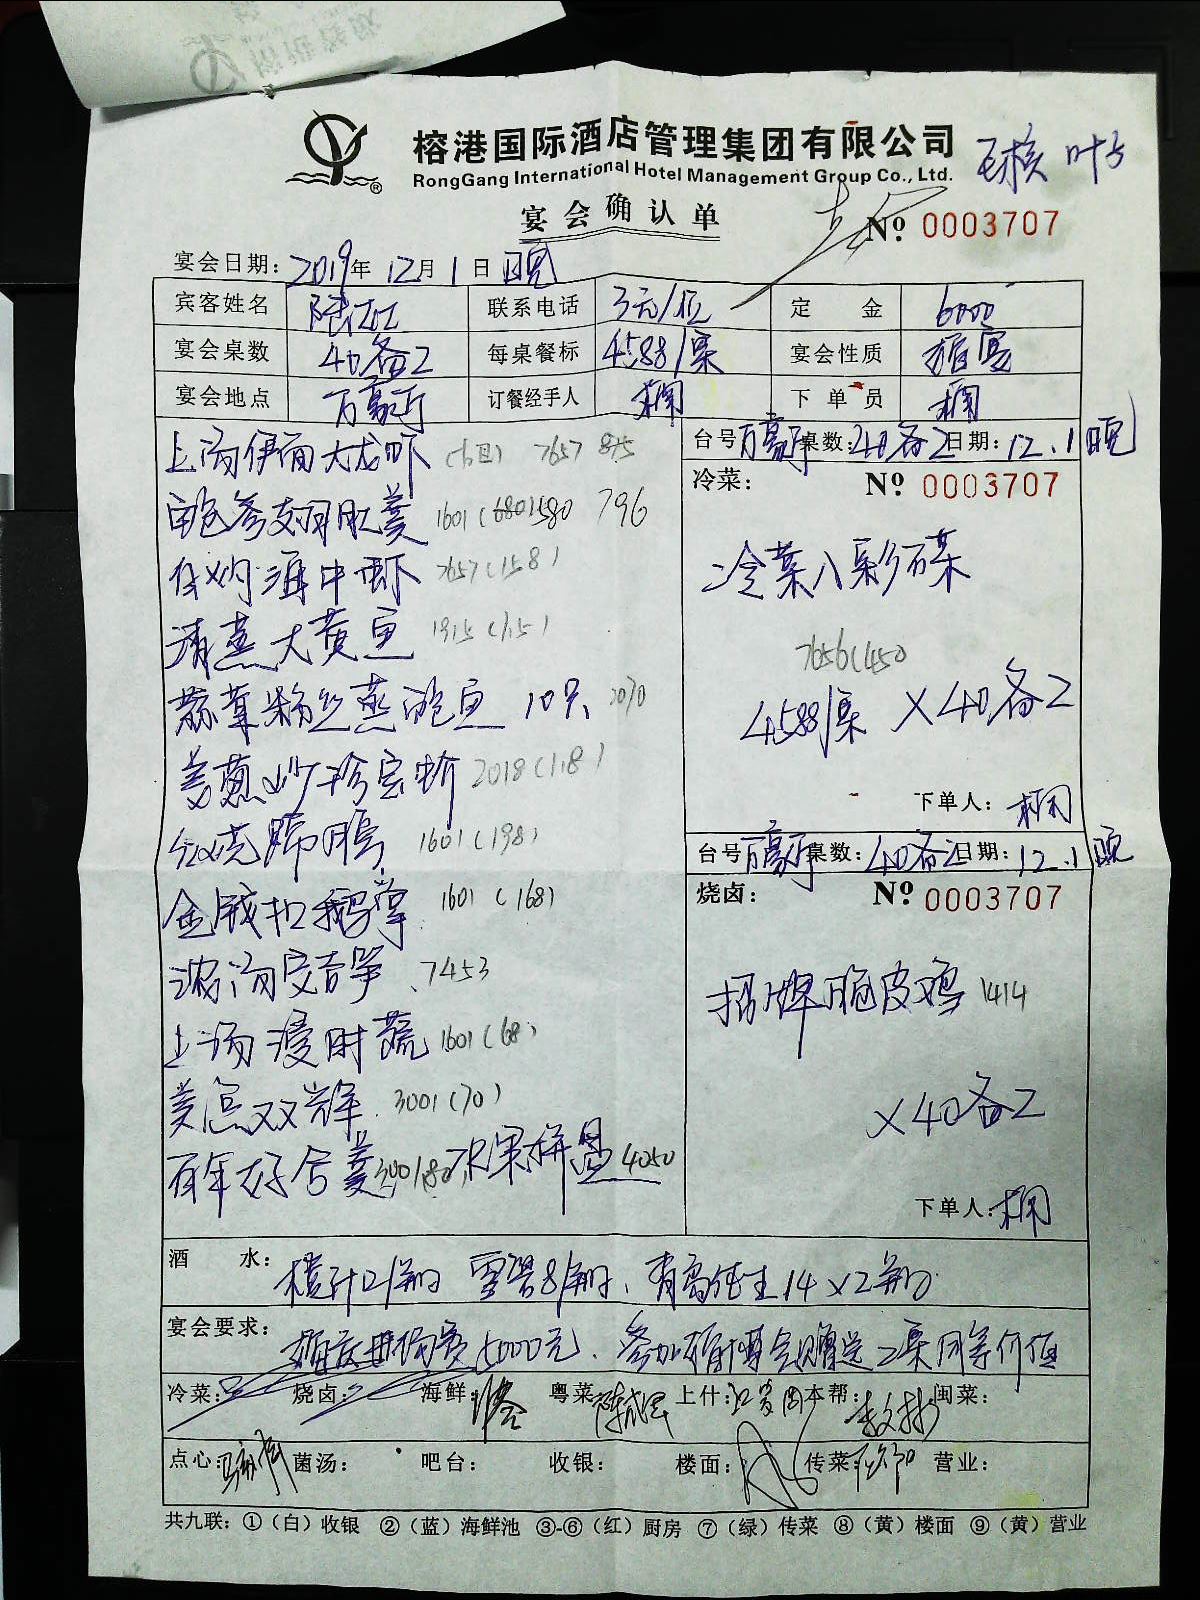 榕港国际酒店管理集团有限公司
RongGang International Hotel Management Group Co., Ltd.
宴会确认单
№ 0003707
宴会日期: 2019年 12月 1日 晚
宾客姓名 联系电话 3元/位 定 金 6000
宴会桌数 40备2 每桌餐标 4588/桌 宴会性质 婚宴
宴会地点 万豪厅 订餐经手人 下单员
上汤伊面大龙虾 7657 875
鲍参翅肚羹 1601 580 796
白灼海中虾 7657(158)
清蒸大黄鱼 1915
蒜茸粉丝蒸鲍鱼 10只
姜葱炒珍宝蟹 2018(118)
红烧蹄膀 1601(198)
金钱扣鹅掌 1601(168)
浓汤 7453
上汤浸时蔬 1601(68)
美点双辉 3001(70)
百年好合羹 水果拼盘 4050
台号 万豪厅 桌数: 40备2 日期: 12.1 晚
冷菜: № 0003707
冷菜八彩碟
7656(450
4588/桌 ×40备2
下单人:
台号 万豪厅 桌数: 40备2 日期: 12.1 晚
烧卤: № 0003707
招牌脆皮鸡 1414
×40备2
下单人:
酒 水: 橙汁 雪碧8/ 14×2
宴会要求: 5000元、参加婚博会赠送2桌同等价值
冷菜: 烧卤: 海鲜: 粤菜: 上什: 本帮: 闽菜:
点心: 菌汤: 吧台: 收银: 楼面: 传菜: 营业:
共九联: ①(白)收银 ②(蓝)海鲜池 ③-⑥(红)厨房 ⑦(绿)传菜 ⑧(黄)楼面 ⑨(黄)营业